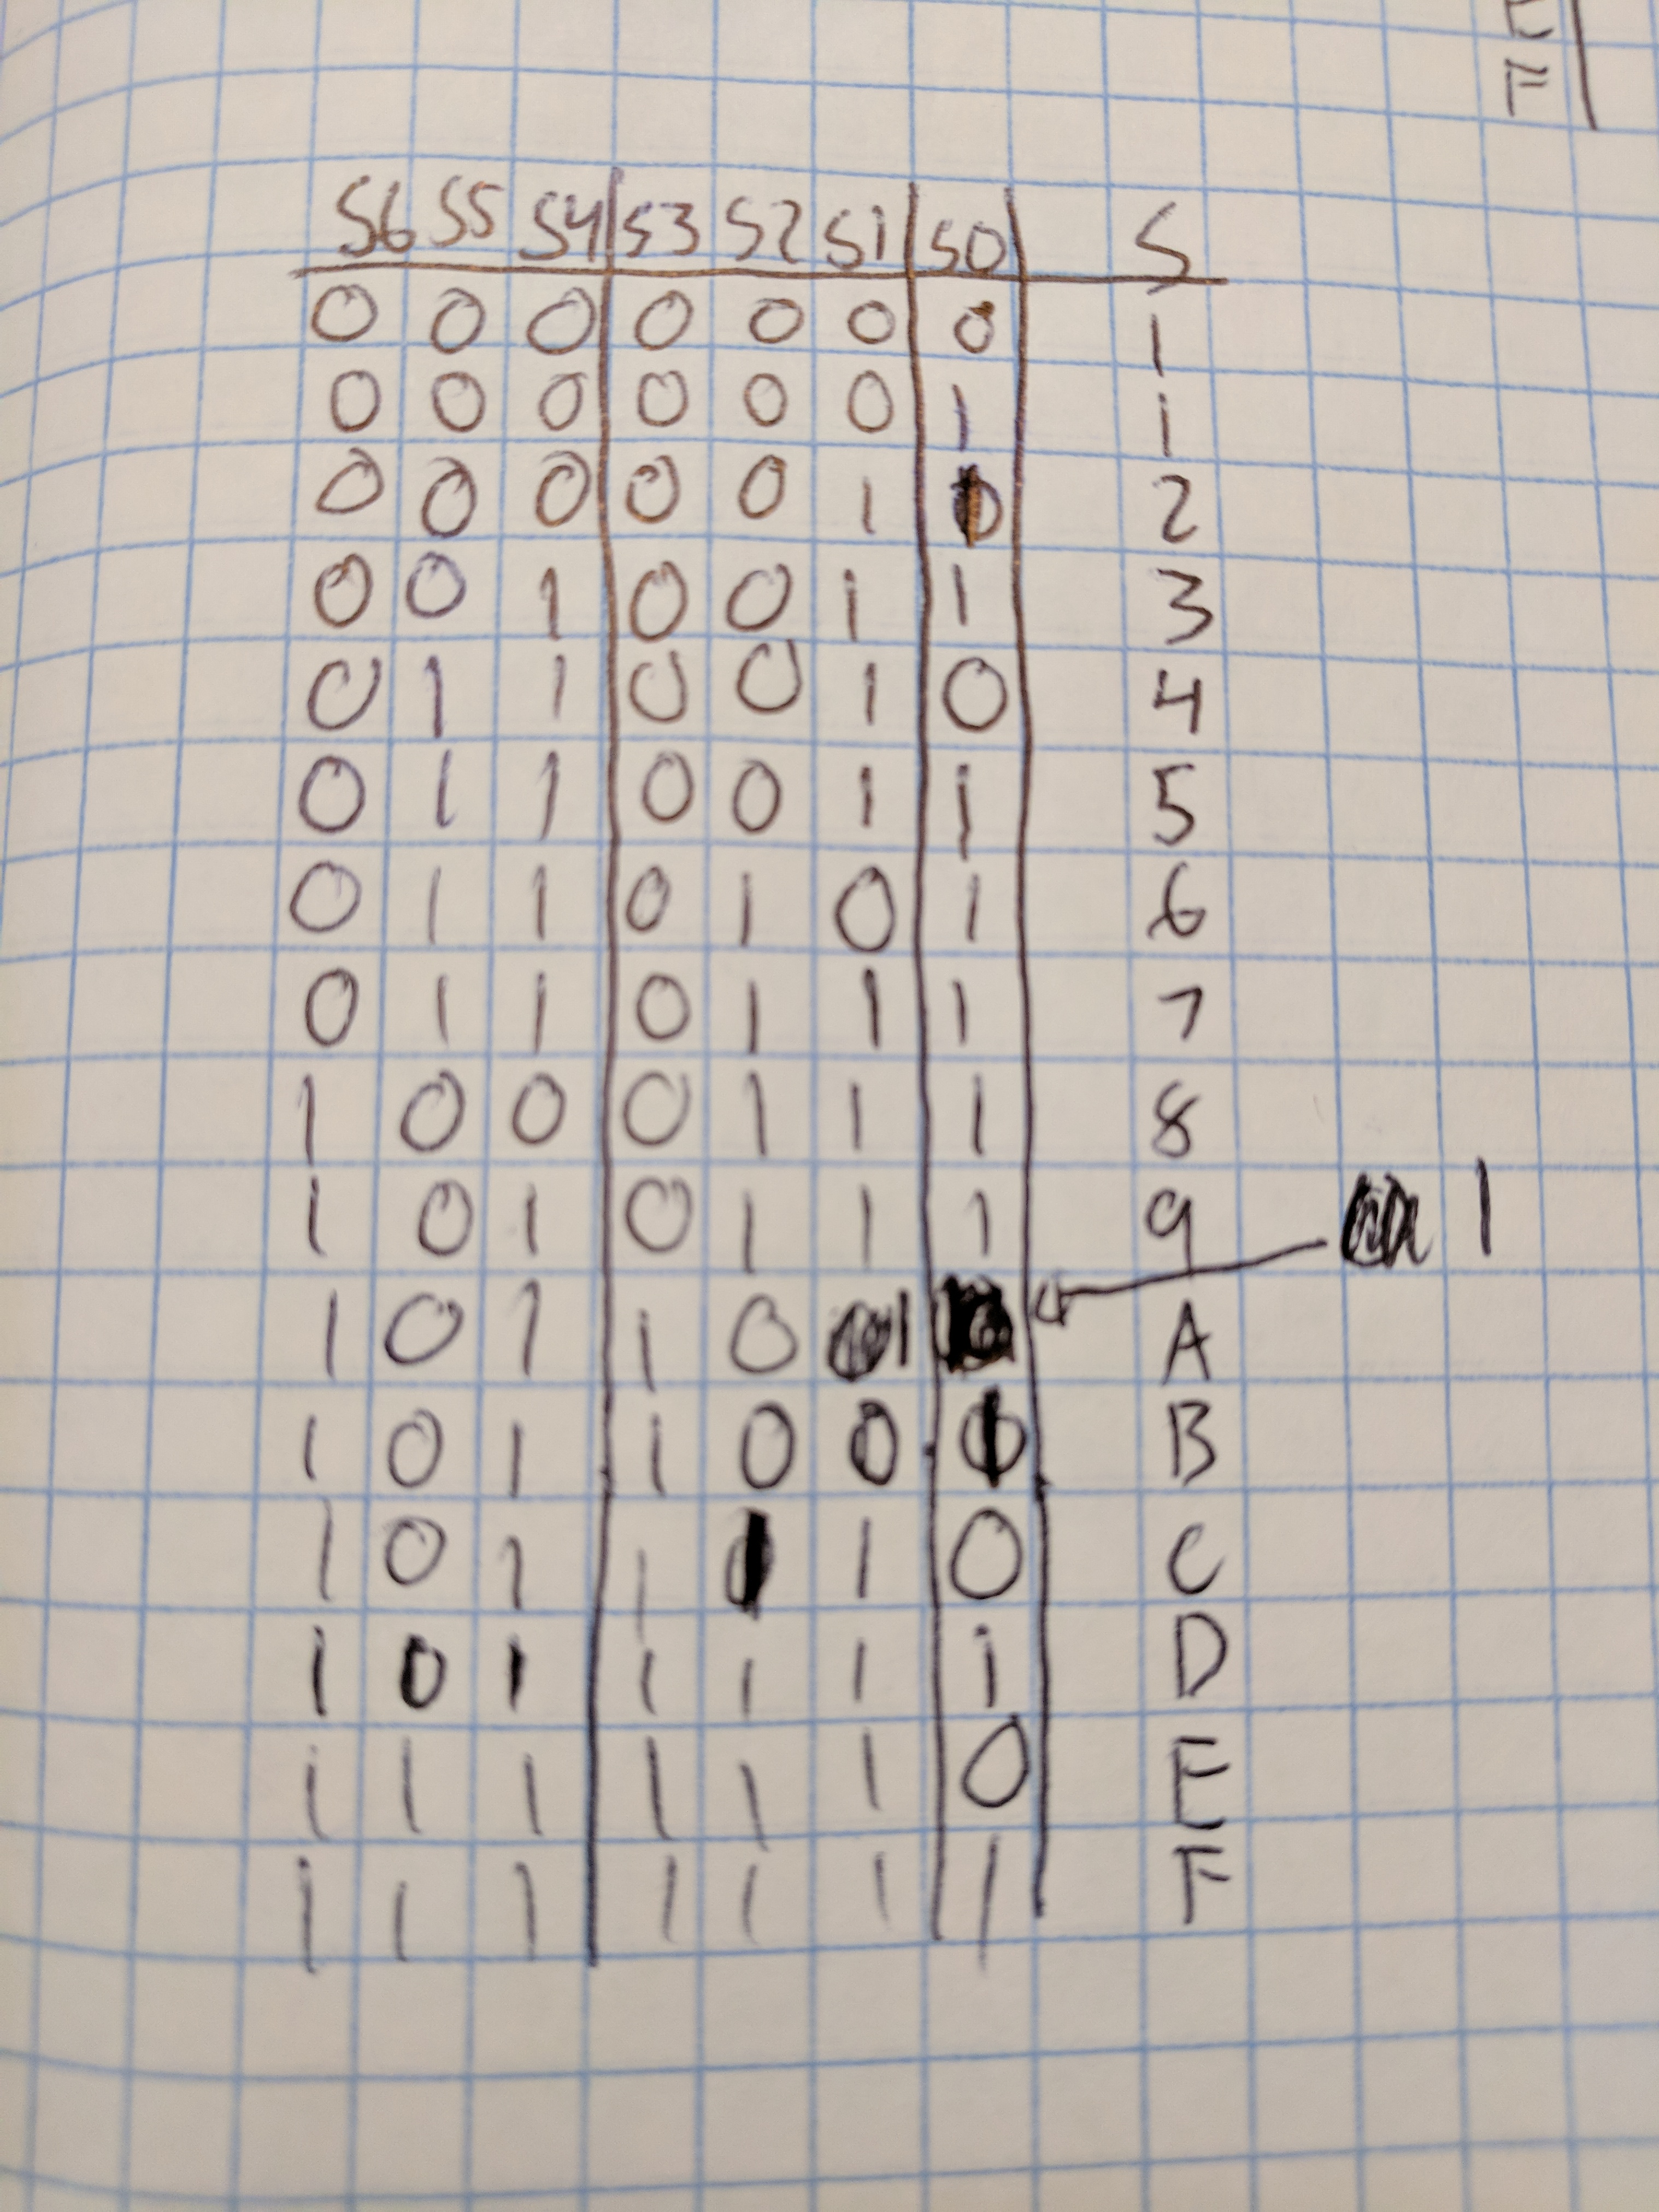 E
F
S6 S5 S4 S3 S2 S1 S0 S
0 0 0 0 0 0 0 1
0 0 0 0 0 0 1 1
0 0 0 0 0 1 2
0 0 1 0 0 1 1 3
0 1 1 0 0 1 0 4
0 1 1 0 0 1 1 5
0 1 1 0 1 0 1 6
0 1 1 0 1 1 1 7
1 0 0 0 1 1 1 8
1 0 1 0 1 1 1 9 1
1 0 1 1 0 1 A
1 0 1 1 0 0 1 B
1 0 1 1 1 1 0 C
1 0 1 1 1 1 1 D
1 1 1 1 1 1 0 E
1 1 1 1 1 1 1 F